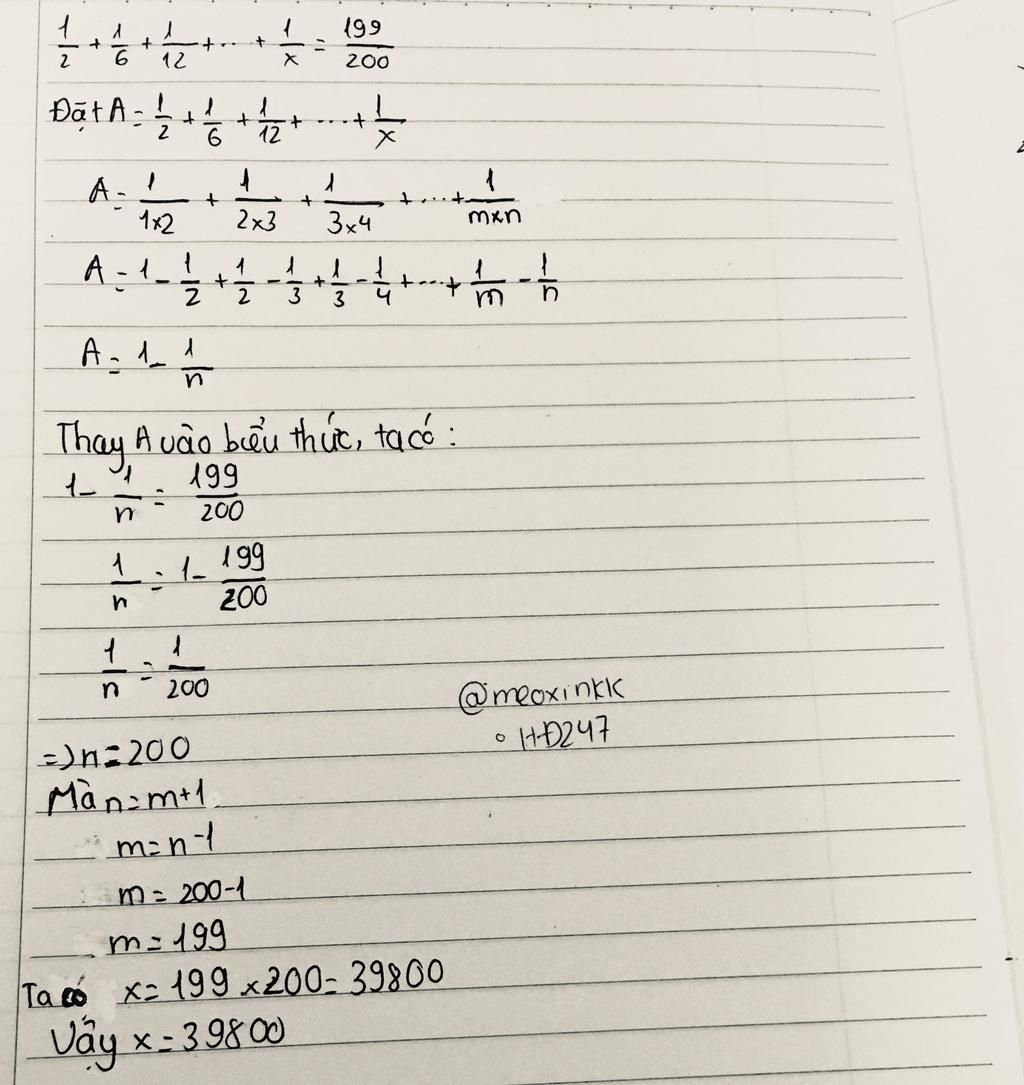 1/2 + 1/6 + 1/12 + ... + 1/x = 199/200
Đặt A = 1/2 + 1/6 + 1/12 + ... + 1/x
A = 1/(1×2) + 1/(2×3) + 1/(3×4) + ... + 1/(m×n)
A = 1 - 1/2 + 1/2 - 1/3 + 1/3 - 1/4 + ... + 1/m - 1/n
A = 1 - 1/n
Thay A vào biểu thức, ta có :
1 - 1/n = 199/200
1/n = 1 - 199/200
1/n = 1/200
@meoxinkk
° HĐ247
=> n = 200
Mà n = m+1
m = n-1
m = 200-1
m = 199
Ta có x = 199 × 200 = 39800
Vậy x = 39800